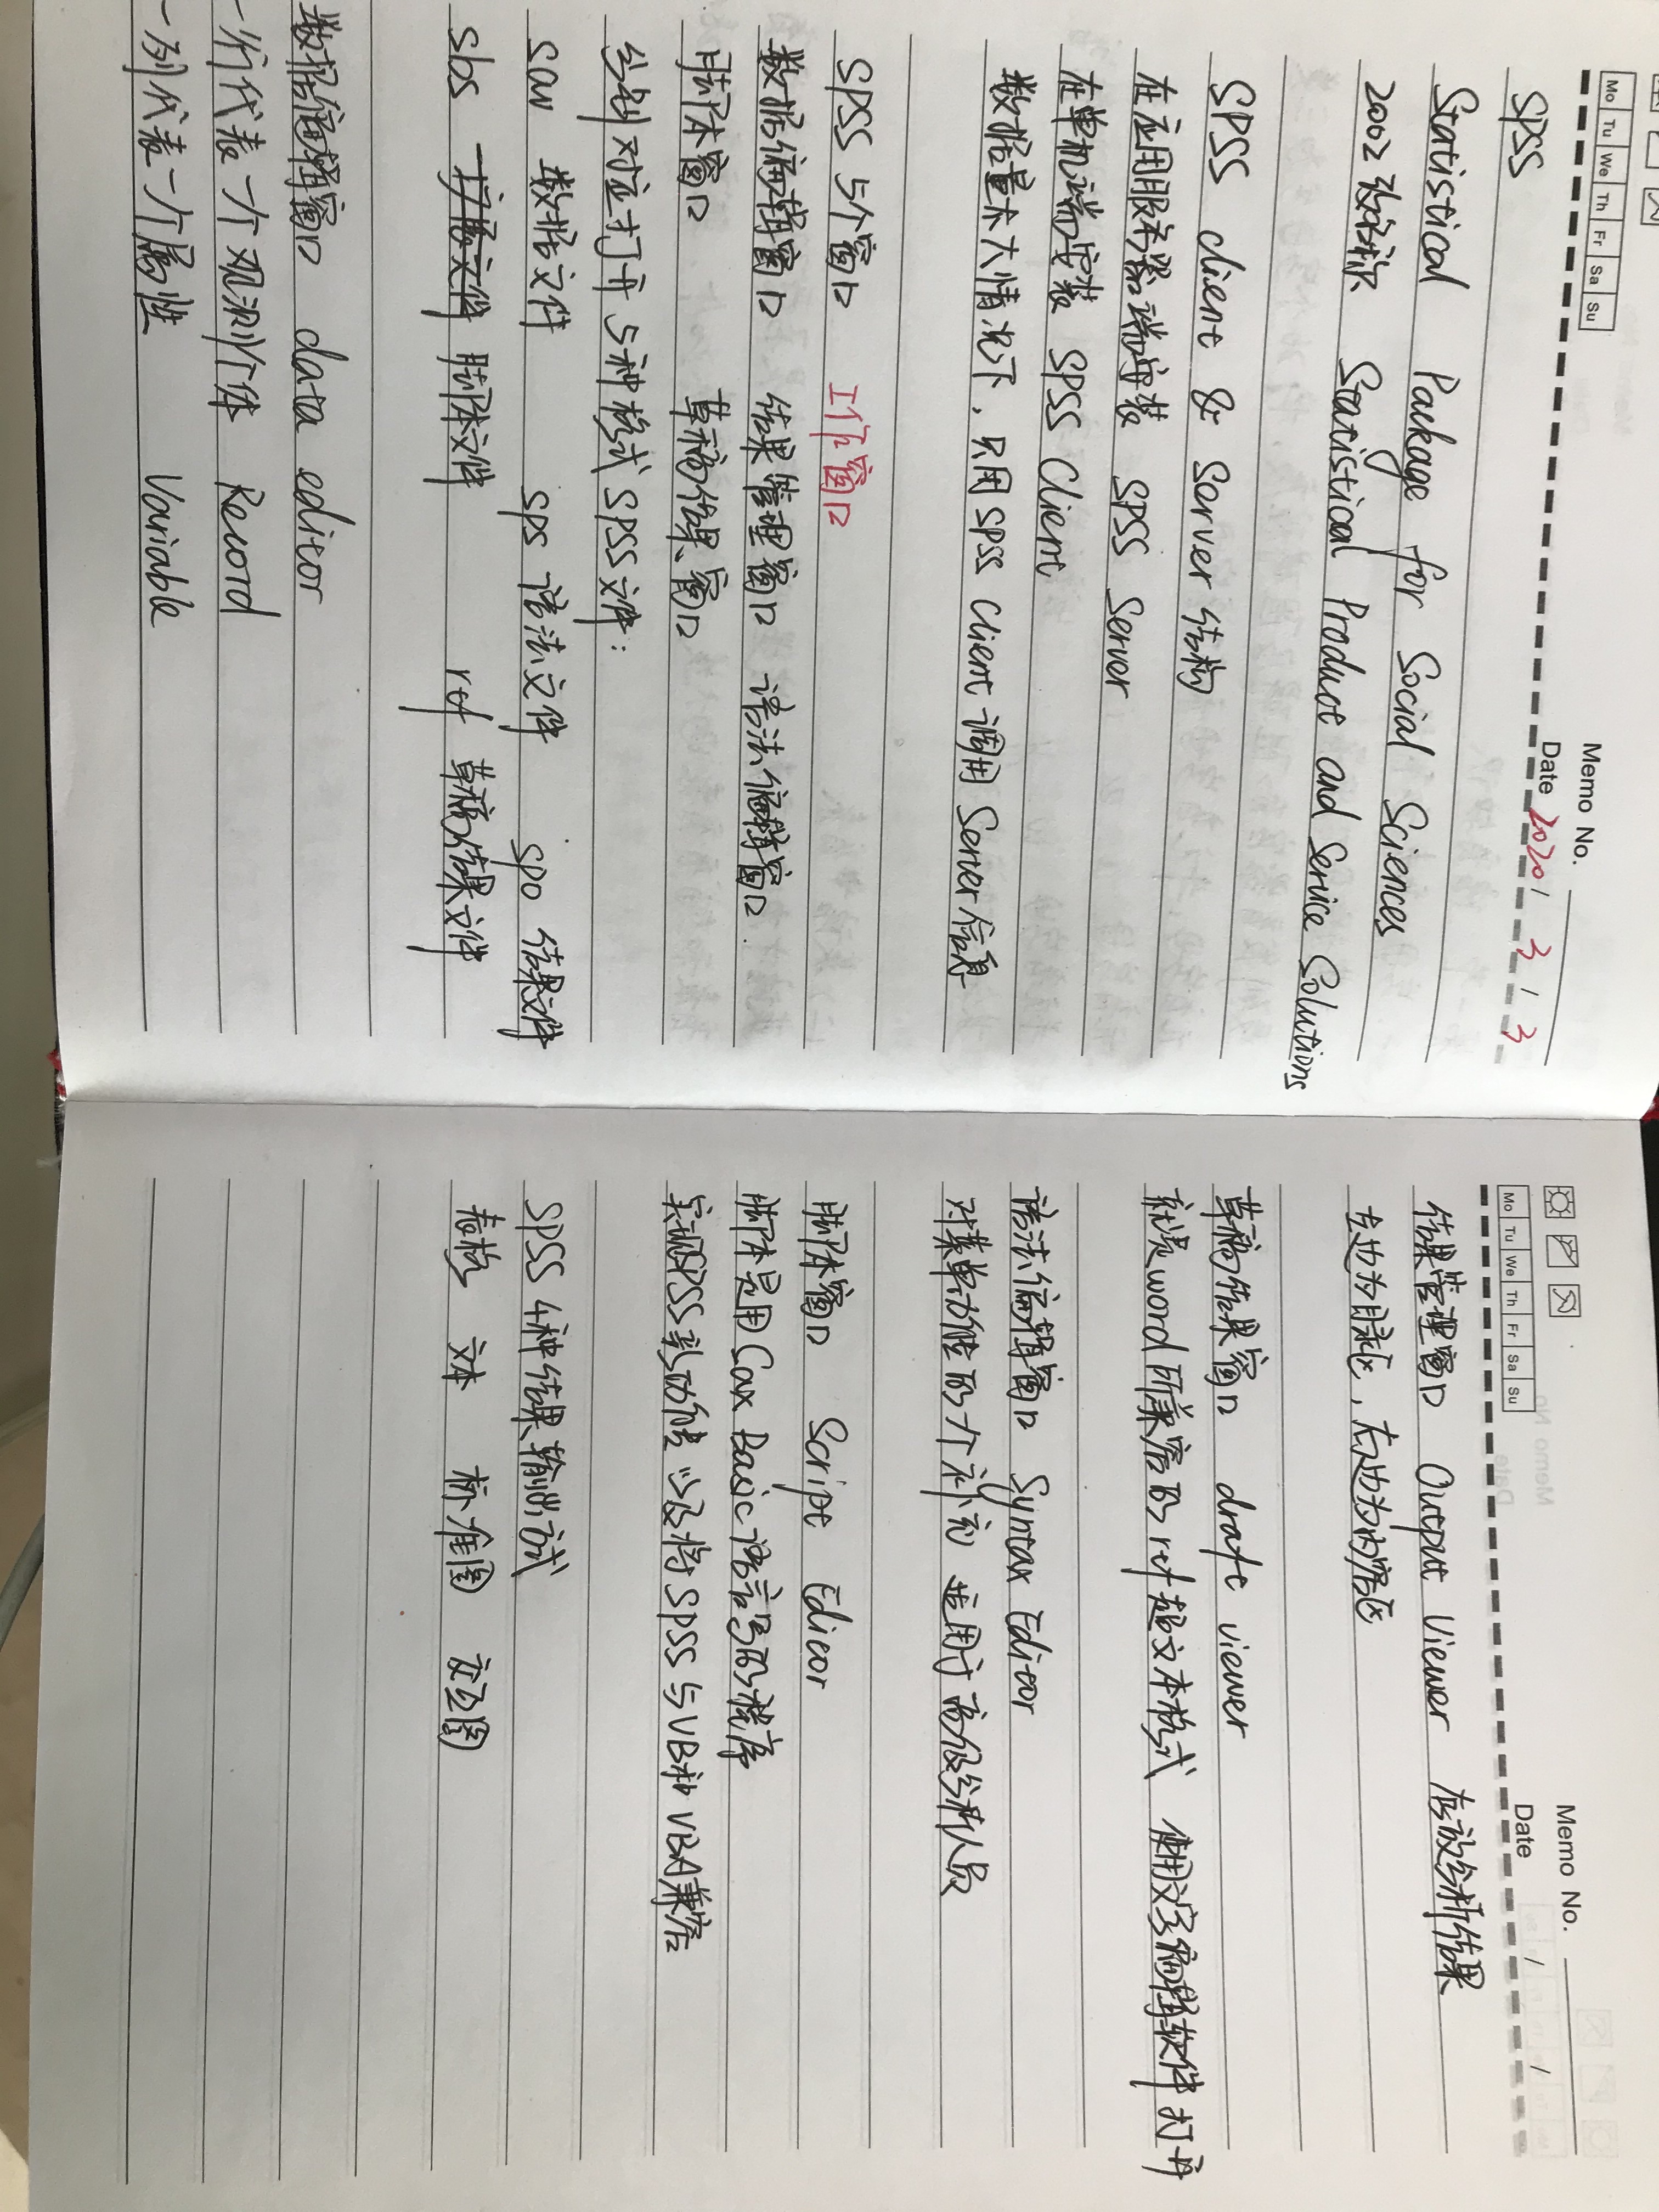 Mo Tu We Th Fr Sa Su
Memo No.
Date 2020 / 3 / 3
SPSS
Statistical Package for Social Sciences
2002 改名称 Statistical Product and Service Solutions
SPSS client & Server 结构
在应用服务器端安装 SPSS Server
在单机端安装 SPSS Client
数据量不大情况下，只用SPSS Client 调用 Server 信息
SPSS 5个窗口 工作窗口
数据编辑窗口 结果管理窗口 语法编辑窗口
脚本窗口 草稿结果窗口
分别对应打开 5种格式 SPSS文件：
sav 数据文件 sps 语法文件 spo 结果文件
sbs 扩展文件 脚本文件 rtf 草稿结果文件
数据编辑窗口 data editor
一行代表一个观测个体 Record
一列代表一个属性 Variable
Mo Tu We Th Fr Sa Su
Memo No.
Date / /
结果管理窗口 Output Viewer 存放分析结果
左边为目录区，右边为内容区
草稿结果窗口 draft viewer
就是word所兼容的rtf超文本格式 使用文字编辑软件打开
语法编辑窗口 Syntax Editor
对菜单功能的个补充 适用于高级分析人员
脚本窗口 Script Editor
脚本是用Sax Basic语言写的程序
实现SPSS新功能 以及将SPSS与VB和VBA兼容
SPSS 4种结果输出方式
表格 文本 标准图 交互图